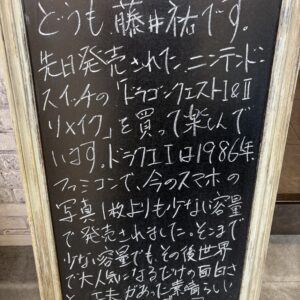 どうも、藤井祐です。
先日発売された、ニンテンドー
スイッチの「ドラゴンクエストI&II
リメイク」を買って楽しんで
います。ドラクエIは1986年、
ファミコンで、今のスマホの
写真1枚よりも少ない容量
で発売されました。そこまで
少ない容量でも、その後世界
で大人気になるだけの面白さ
と、工夫があった素晴らしい